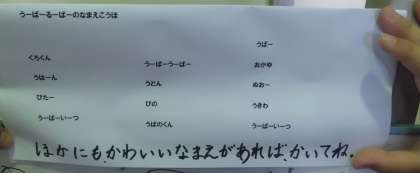 うーぱーるーぱーのなまえこうほ
うぱー
くろくん
うーぱーうーぱー
おかゆ
うはーん
うどん
ぬおー
ぴたー
ぴの
うきわ
うーぱーいーつ
うぱのくん
うーぱーいーつ
ほかにも、かわいいなまえがあれば、かいてね。